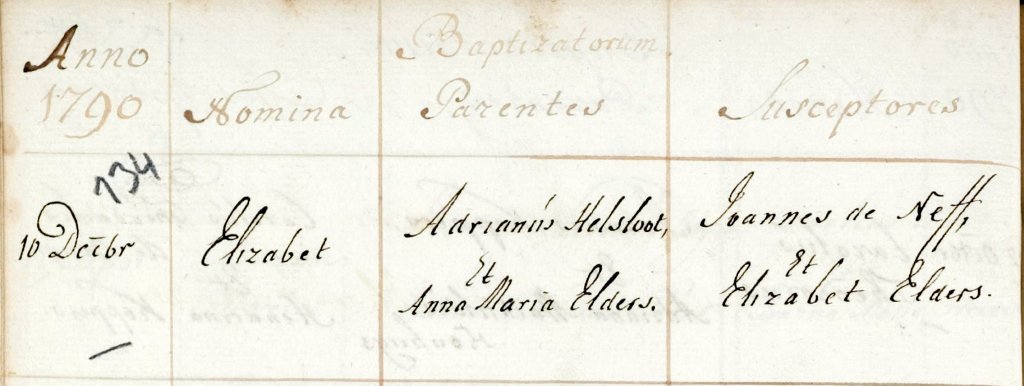 Anno
1790
Nomina
Baptizatorum
Parentes
Susceptores
734
10 Decbr
Elizabet
Adrianús Helsloot,
Et
Anna Maria Elders.
Joannes de Neff,
Et
Elizabet Elders.